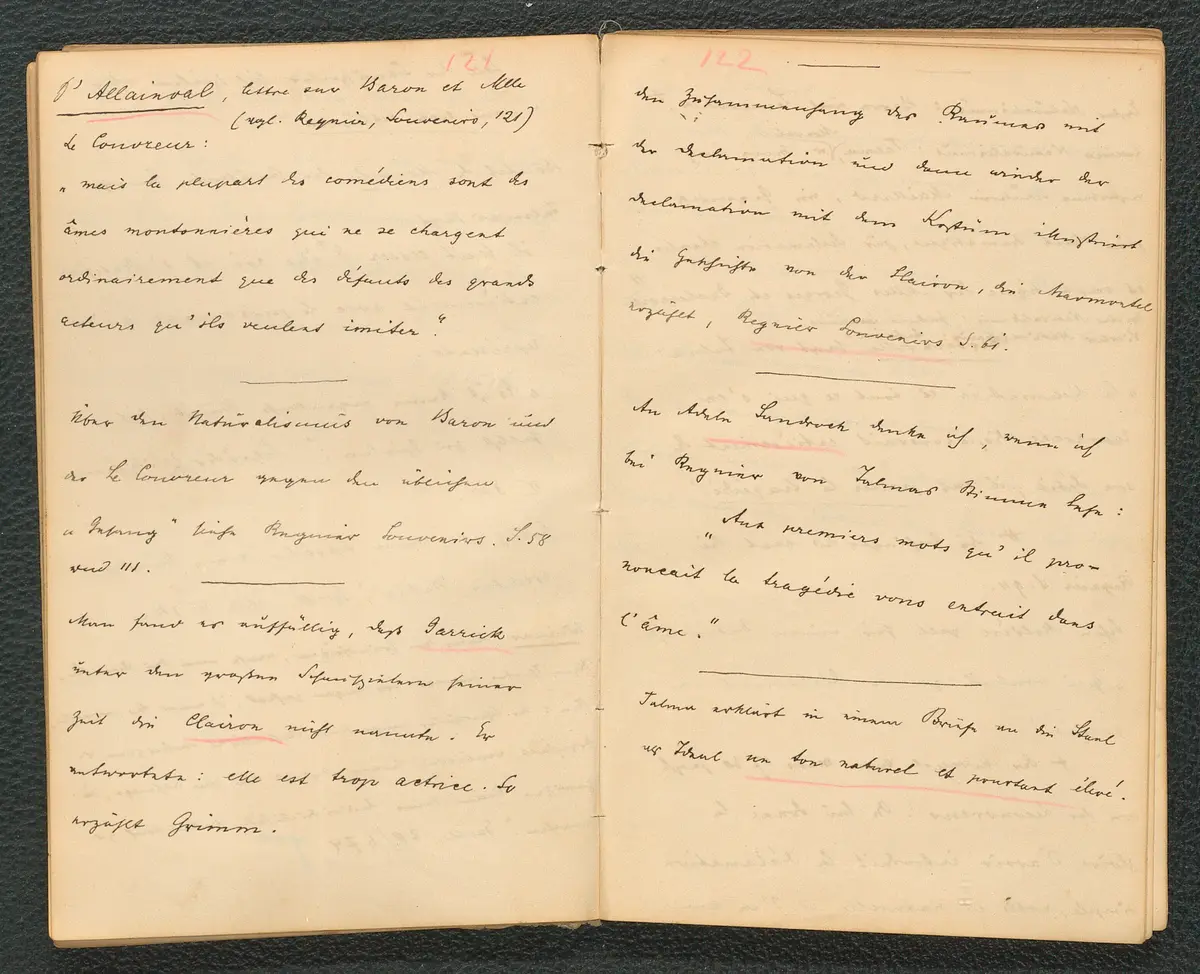 121
d'Allainval, lettre sur Baron et Mlle
(vgl. Regnier, Souvenirs, 121)
Le Couvreur:
„mais la plupart des comédiens sont des
âmes moutonnières qui ne se chargent
ordinairement que des défauts des grands
acteurs qu'ils veulent imiter“.
Über den Naturalismus von Baron und
der Le Couvreur gegen den üblichen
„Gesang“ siehe Regnier Souvenirs. S. 58
und 111.
Man fand es auffällig, daß Garrick
unter den großen Schauspielern seiner
Zeit die Clairon nicht nannte. Er
antwortete: elle est trop actrice. So
erzählt Grimm.
122
den Zusammenhang des Raumes mit
der Declamation und dann wieder der
Declamation mit dem Kostüm illustriert
die Geschichte von der Clairon, die Marmontel
erzählt, Regnier Souvenirs S. 61.
An Adele Sandrock denke ich, wenn ich
bei Regnier von Talmas Stimme lese:
„Aux premiers mots qu'il pro-
noncait la tragédie vous entrait dans
l'âme.“
Talma erklärt in einem Briefe an die Stael
als Ideal un ton naturel et pourtant élevé.